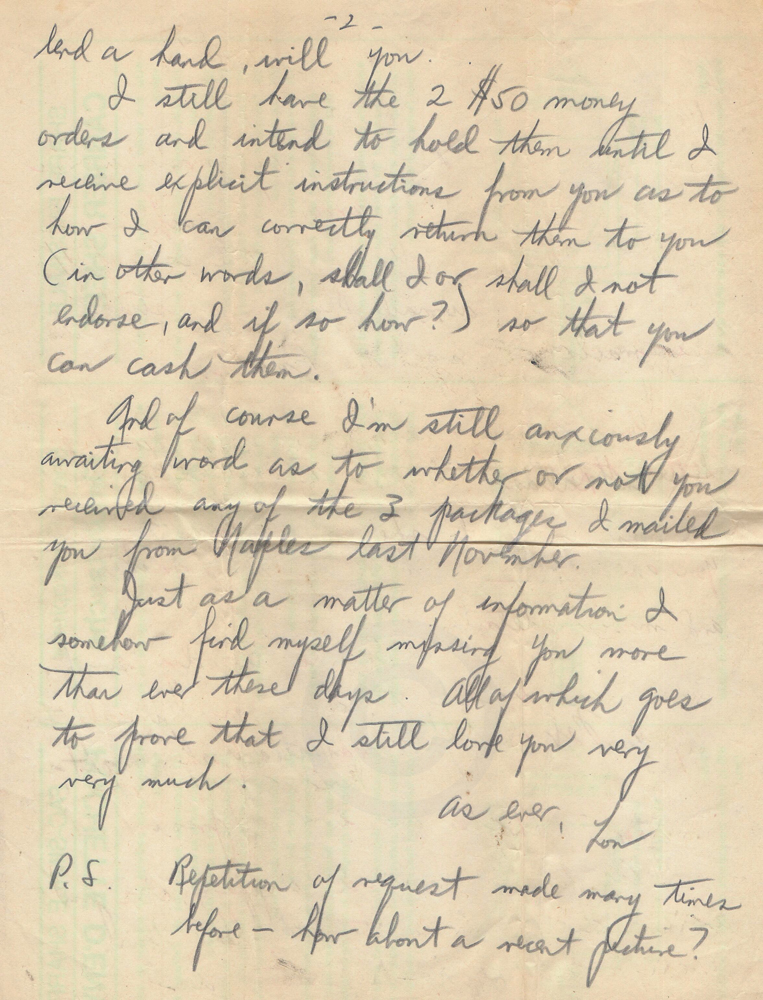 - 2 -
lend a hand, will you.
I still have the 2 $50 money
orders and intend to hold them until I
receive explicit instructions from you as to
how I can correctly return them to you
(in other words, shall I or shall I not
endorse, and if so how?) so that you
can cash them.
And of course I'm still anxiously
awaiting word as to whether or not you
received any of the 3 packages I mailed
you from Naples last November.
Just as a matter of information I
somehow find myself missing you more
than ever these days. All of which goes
to prove that I still love you very
very much.
As ever,
Lon
P.S. Repetition of request made many times
before - how about a recent picture?